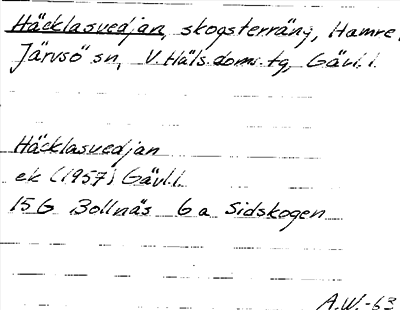 Häcklasvedjan, skogsterräng, Hamre,
Järvsö sn, V. Häls. doms. tg, Gävl. l.
Häcklasvedjan
ek (1957) Gävl. l.
15G Bollnäs 6a Sidskogen
A.W.-63